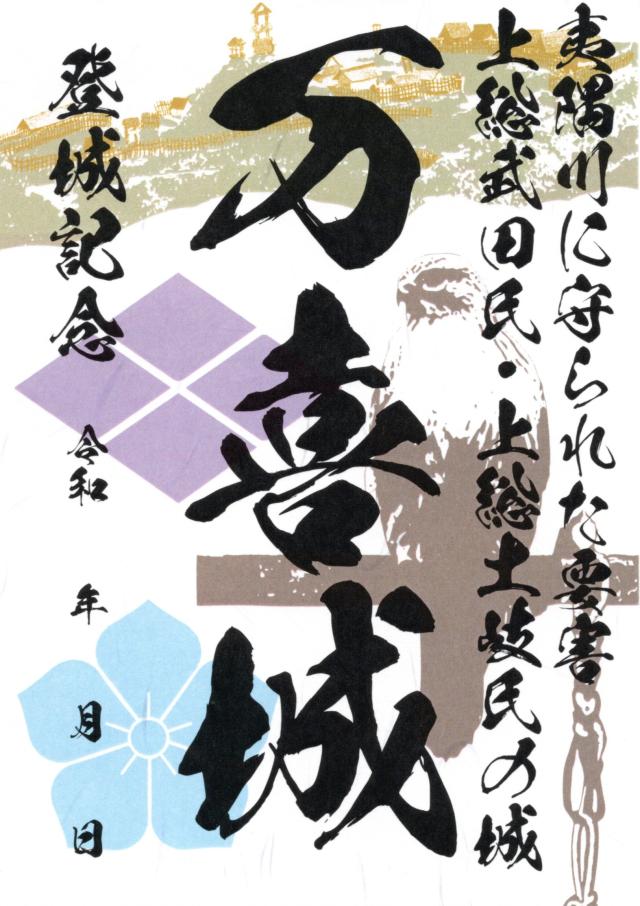 夷隅川に守られた要害
上総武田氏・上総土岐氏の城
万喜城
登城記念
令和 年 月 日